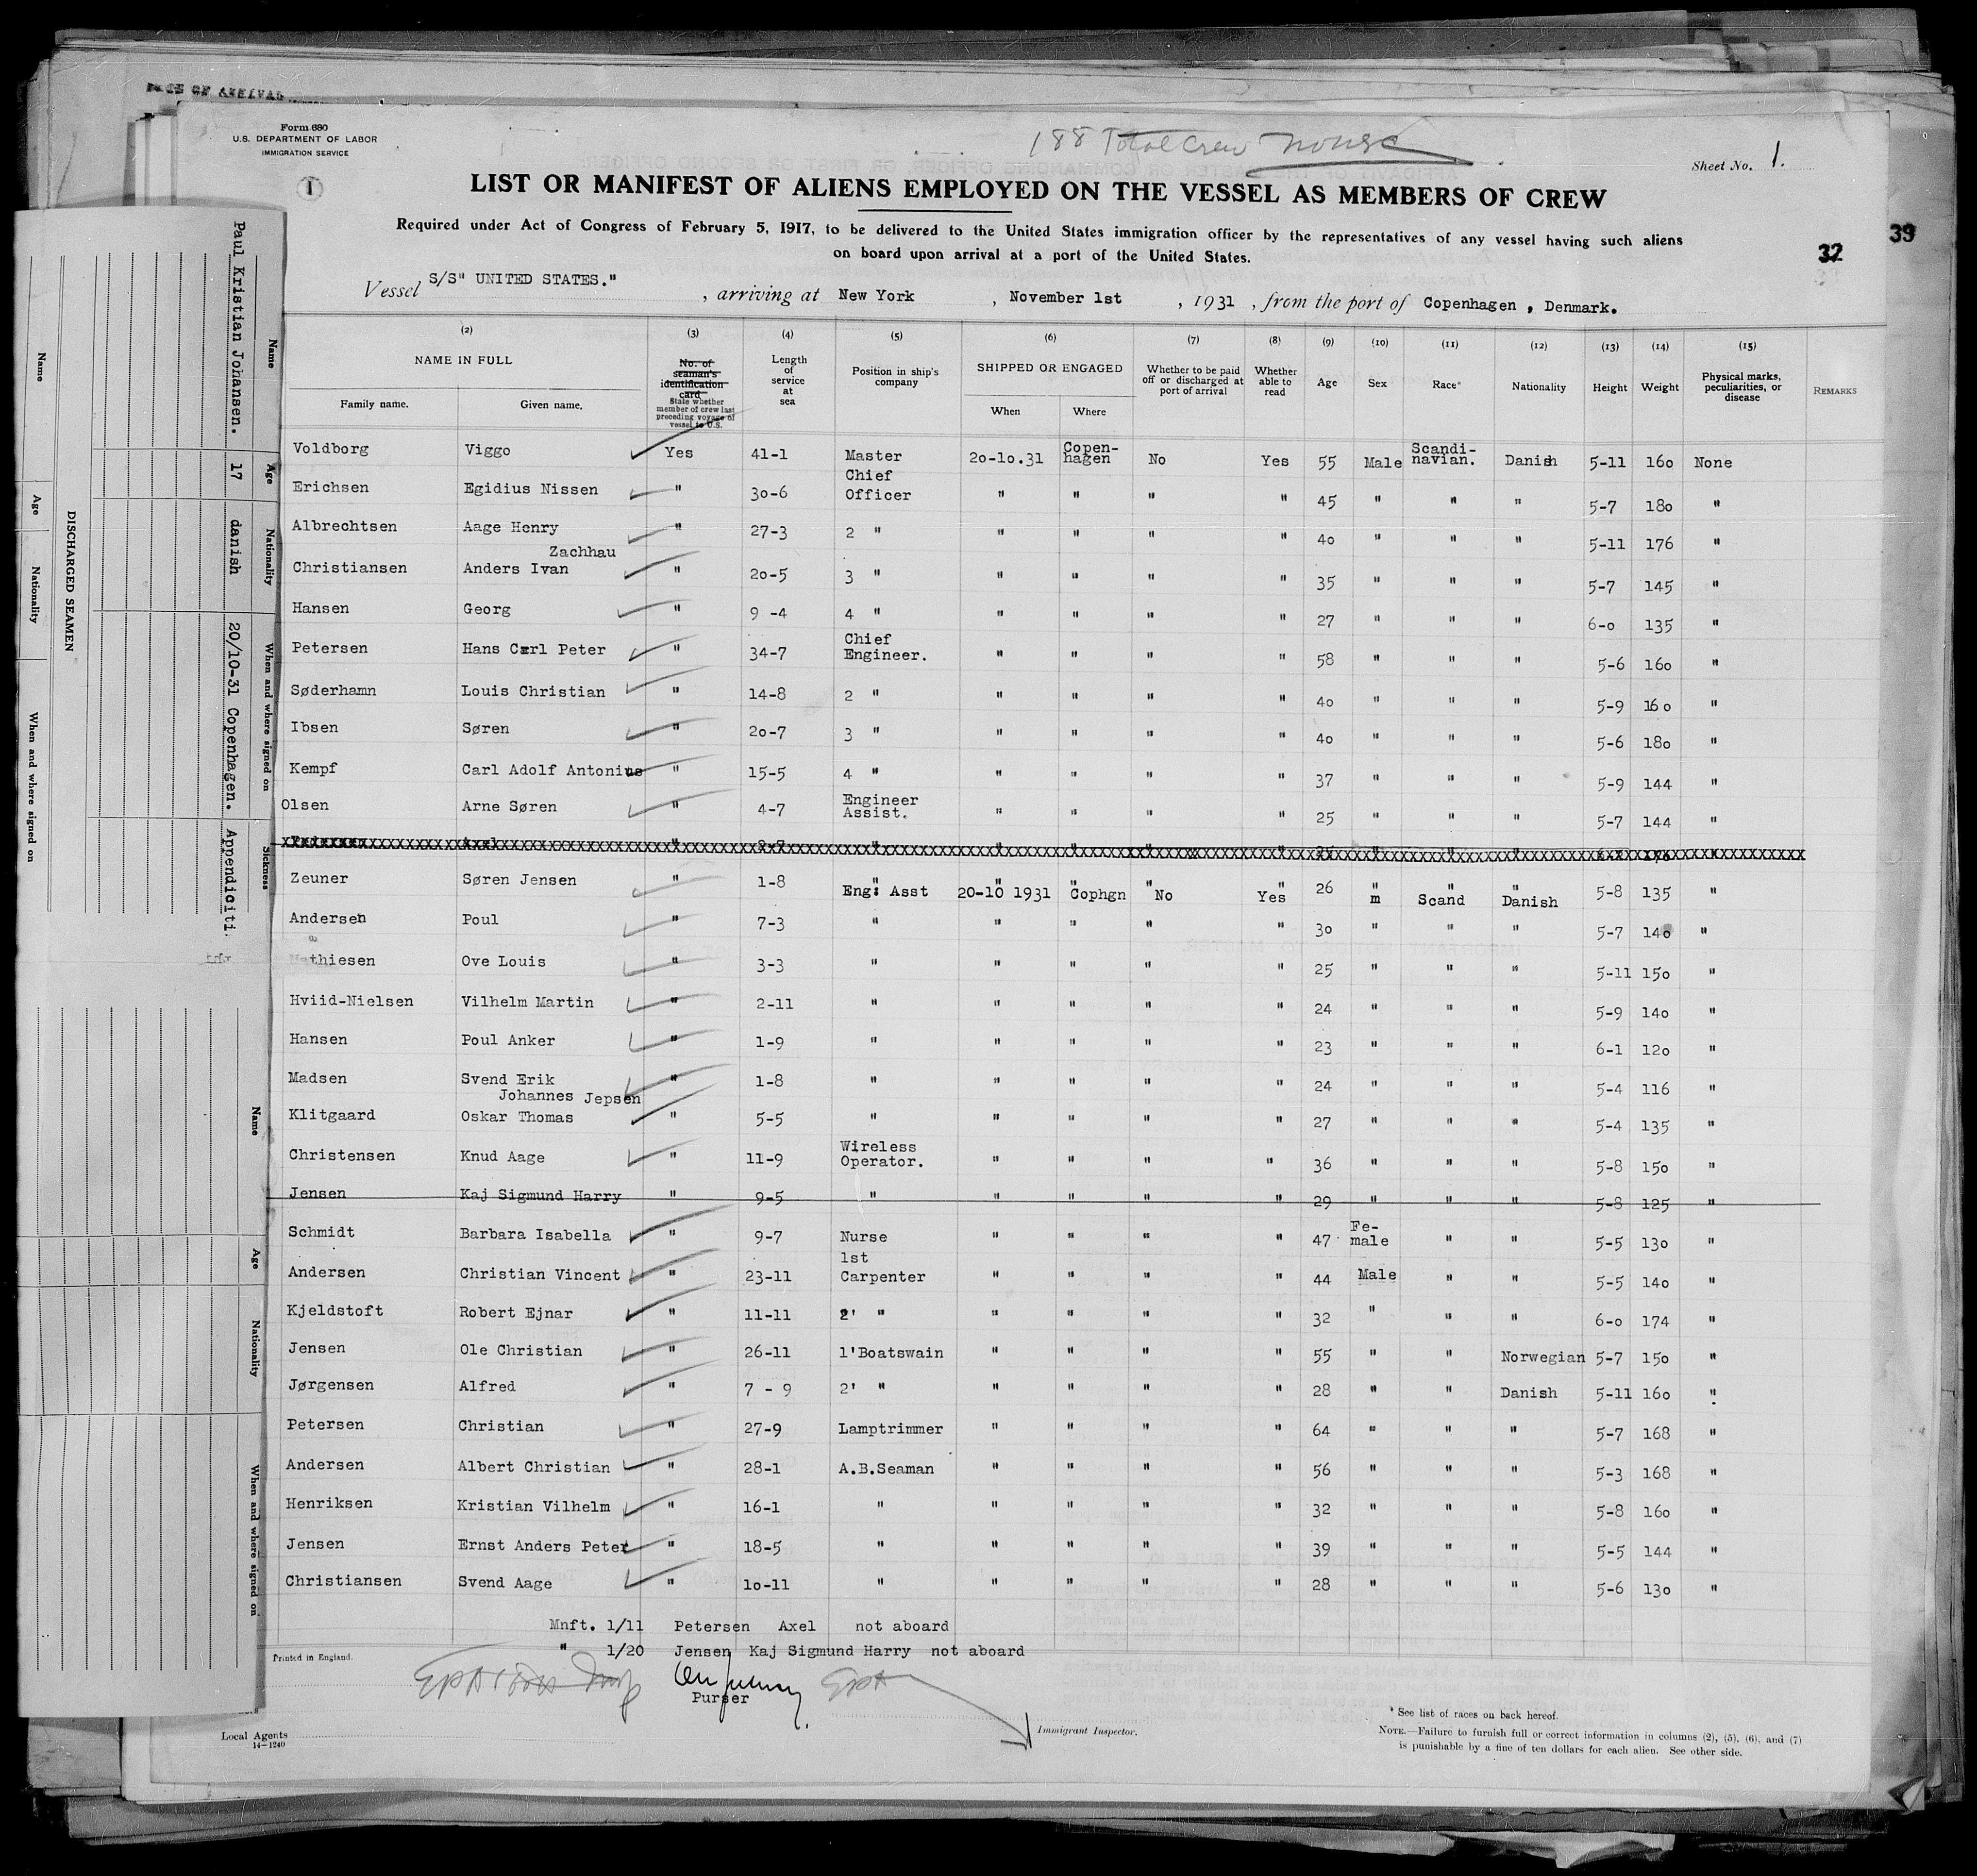 DATE OF ARRIVAL
Form 680
U.S. DEPARTMENT OF LABOR
IMMIGRATION SERVICE
188 Total Crew
Sheet No. 1.
1
LIST OR MANIFEST OF ALIENS EMPLOYED ON THE VESSEL AS MEMBERS OF CREW
Required under Act of Congress of February 5, 1917, to be delivered to the United States immigration officer by the representatives of any vessel having such aliens
on board upon arrival at a port of the United States.
32
39
Vessel S/S" UNITED STATES." , arriving at New York , November 1st , 1931 , from the port of Copenhagen , Denmark.
(2) (3) (4) (5) (6) (7) (8) (9) (10) (11) (12) (13) (14) (15)
NAME IN FULL
Family name. Given name.
No. of seaman's identification card
State whether member of crew last preceding voyage of vessel to U.S.
Length of service at sea
Position in ship's company
SHIPPED OR ENGAGED
When Where
Whether to be paid off or discharged at port of arrival
Whether able to read
Age Sex Race* Nationality Height Weight
Physical marks, peculiarities, or disease
REMARKS
Voldborg Viggo Yes 41-1 Master 20-10.31 Copen-hagen No Yes 55 Male Scandi-navian. Danish 5-11 160 None
Erichsen Egidius Nissen " 30-6 Chief Officer " " " " 45 " " " 5-7 180 "
Albrechtsen Aage Henry " 27-3 2 " " " " " 40 " " " 5-11 176 "
Zachhau
Christiansen Anders Ivan " 20-5 3 " " " " " 35 " " " 5-7 145 "
Hansen Georg " 9 -4 4 " " " " " 27 " " " 6-0 135 "
Petersen Hans Carl Peter " 34-7 Chief Engineer. " " " " 58 " " " 5-6 160 "
Søderhamn Louis Christian " 14-8 2 " " " " " 40 " " " 5-9 160 "
Ibsen Søren " 20-7 3 " " " " " 40 " " " 5-6 180 "
Kempf Carl Adolf Antonius " 15-5 4 " " " " " 37 " " " 5-9 144 "
Olsen Arne Søren " 4-7 Engineer Assist. " " " " 25 " " " 5-7 144 "
Zeuner Søren Jensen " 1-8 " " " " " 26 " " " 5-8 135 "
Eng: Asst 20-10 1931 Cophgn No Yes m Scand Danish
Andersen Poul " 7-3 " " " " " 30 " " " 5-7 140 "
Mathiesen Ove Louis " 3-3 " " " " " 25 " " " 5-11 150 "
Hviid-Nielsen Vilhelm Martin " 2-11 " " " " " 24 " " " 5-9 140 "
Hansen Poul Anker " 1-9 " " " " " 23 " " " 6-1 120 "
Madsen Svend Erik " 1-8 " " " " " 24 " " " 5-4 116 "
Johannes Jepsen
Klitgaard Oskar Thomas " 5-5 " " " " " 27 " " " 5-4 135 "
Christensen Knud Aage " 11-9 Wireless Operator. " " " " 36 " " " 5-8 150 "
Jensen Kaj Sigmund Harry " 9-5 " " " " " 29 " " " 5-8 125 "
Schmidt Barbara Isabella " 9-7 Nurse " " " " 47 Fe-male " " 5-5 130 "
Andersen Christian Vincent " 23-11 1st Carpenter " " " " 44 Male " " 5-5 140 "
Kjeldstoft Robert Ejnar " 11-11 2' " " " " " 32 " " " 6-0 174 "
Jensen Ole Christian " 26-11 1'Boatswain " " " " 55 " " Norwegian 5-7 150 "
Jørgensen Alfred " 7 - 9 2' " " " " " 28 " " Danish 5-11 160 "
Petersen Christian " 27-9 Lamptrimmer " " " " 64 " " " 5-7 168 "
Andersen Albert Christian " 28-1 A.B.Seaman " " " " 56 " " " 5-3 168 "
Henriksen Kristian Vilhelm " 16-1 " " " " " 32 " " " 5-8 160 "
Jensen Ernst Anders Peter " 18-5 " " " " " 39 " " " 5-5 144 "
Christiansen Svend Aage " 10-11 " " " " " 28 " " " 5-6 130 "
Mnft. 1/11 Petersen Axel not aboard
" 1/20 Jensen Kaj Sigmund Harry not aboard
Printed in England.
Purser
Local Agents
14-1240
Immigrant Inspector.
* See list of races on back hereof.
NOTE.—Failure to furnish full or correct information in columns (2), (5), (6), and (7)
is punishable by a fine of ten dollars for each alien. See other side.
DISCHARGED SEAMEN
Name Age Nationality When and where signed on
Name Age Nationality When and where signed on Sickness
Paul Kristian Johansen. 17 danish 20/10-31 Copenhagen. Appendiciti.
Name Age Nationality When and where signed on